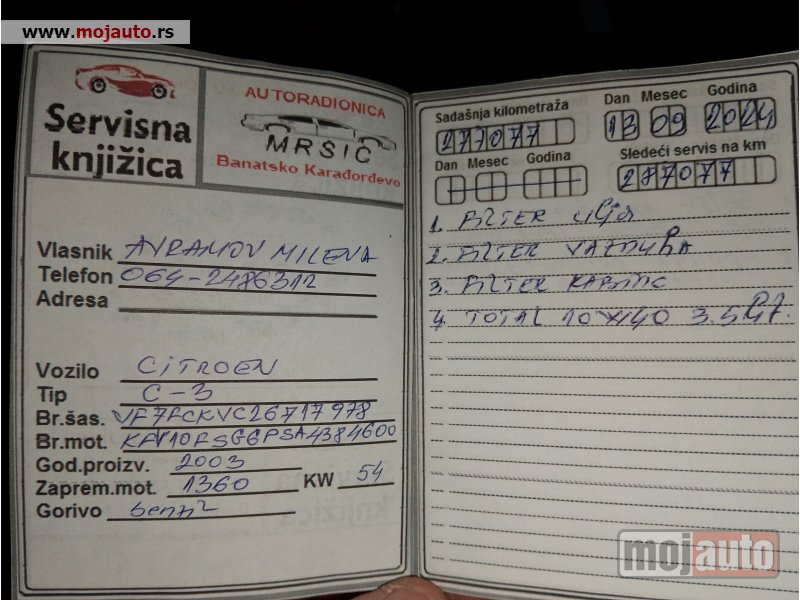 www.mojauto.rs
Servisna
knjižica
AUTORADIONICA
MRSIC
Banatsko Karađorđevo
Vlasnik AVRAMOV MILEVA
Telefon 064-2486312
Adresa
Vozilo CITROEN
Tip C-3
Br.šas. VF7FCKVC26717978
Br.mot. PSA4384600
God.proizv. 2003
Zaprem.mot. 1360 KW 54
Gorivo benzi
Sadašnja kilometraža Dan Mesec Godina
277077 13 09 2024
Dan Mesec Godina Sledeći servis na km
287077
1. FILTER ulja
2. FILTER VAZDUHA
3. FILTER KABINE
4. TOTAL 10W40 3.5
mojauto